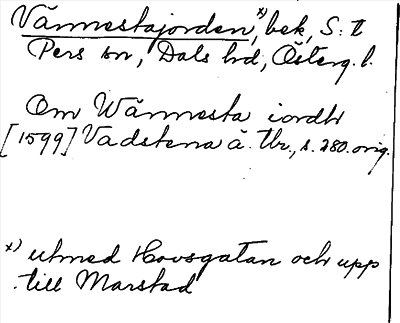 Värmestajorden,x) bek, S:t
Pers sn, Dals hd, Österg.l.
Om Wärmesta iordh
[1599] Vadstena ä. tbr., s. 280. orig.
x) utmed Hovsgatan och upp
till Marstad